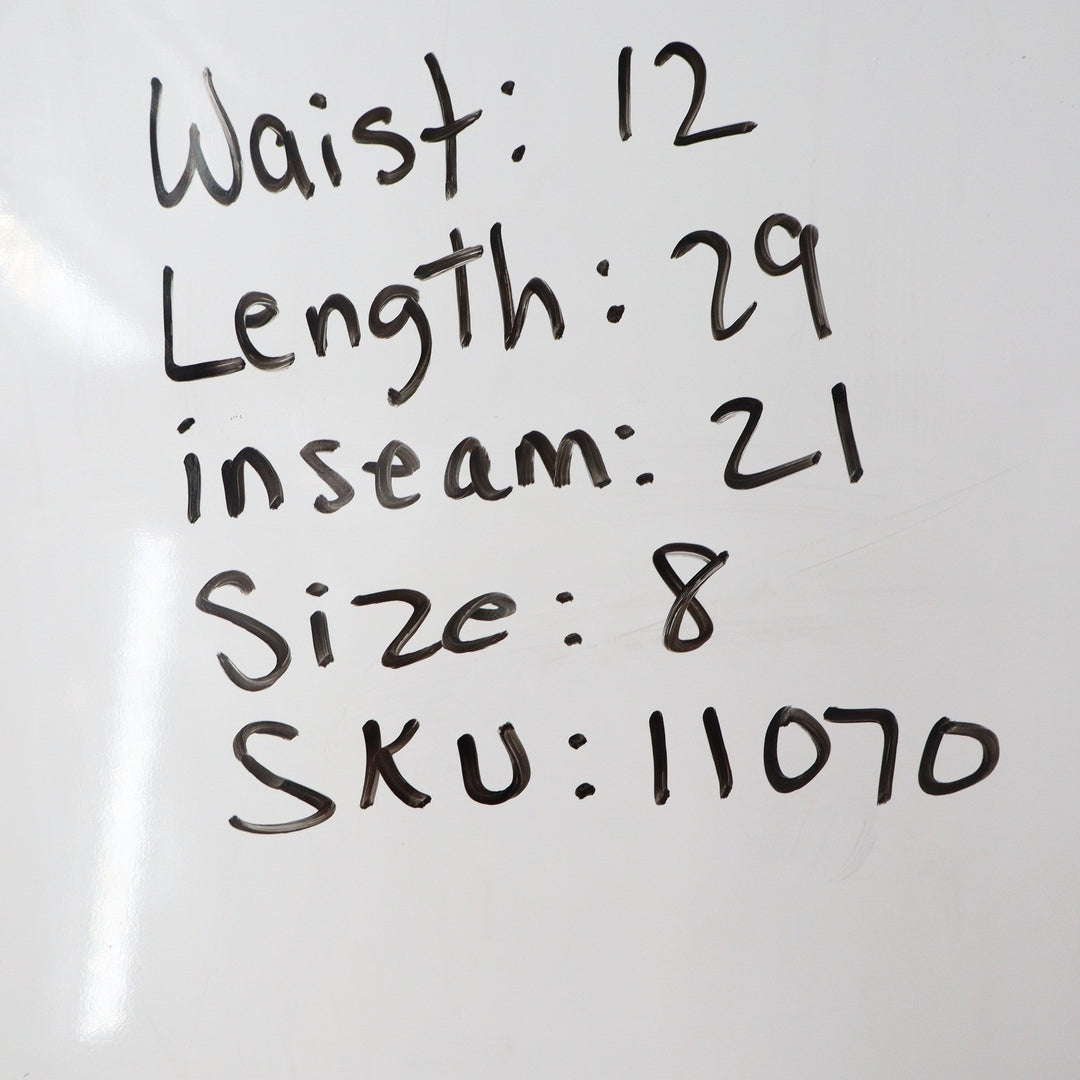 Waist: 12
Length: 29
inseam: 21
Size: 8
SKU: 11070